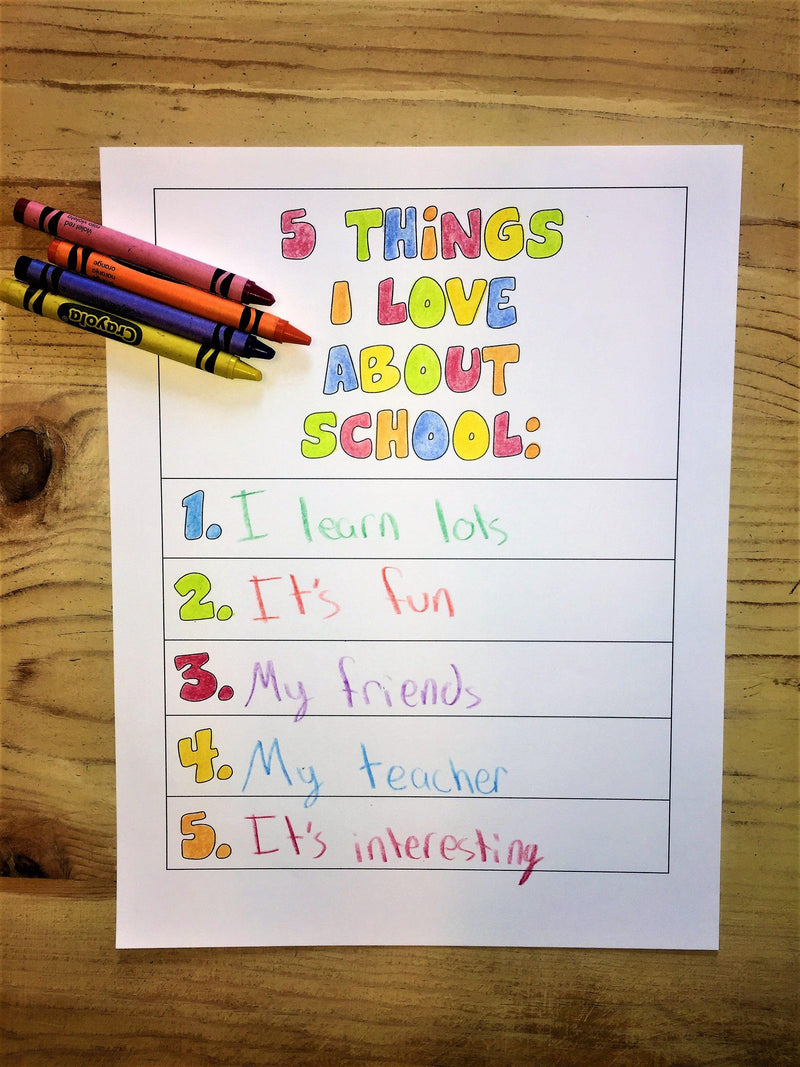 5 THiNGS
I LOVE
ABOUT
SCHOOL:
1. I learn lots
2. It's fun
3. My friends
4. My teacher
5. It's interesting
violet red
orange
naranja
Crayola